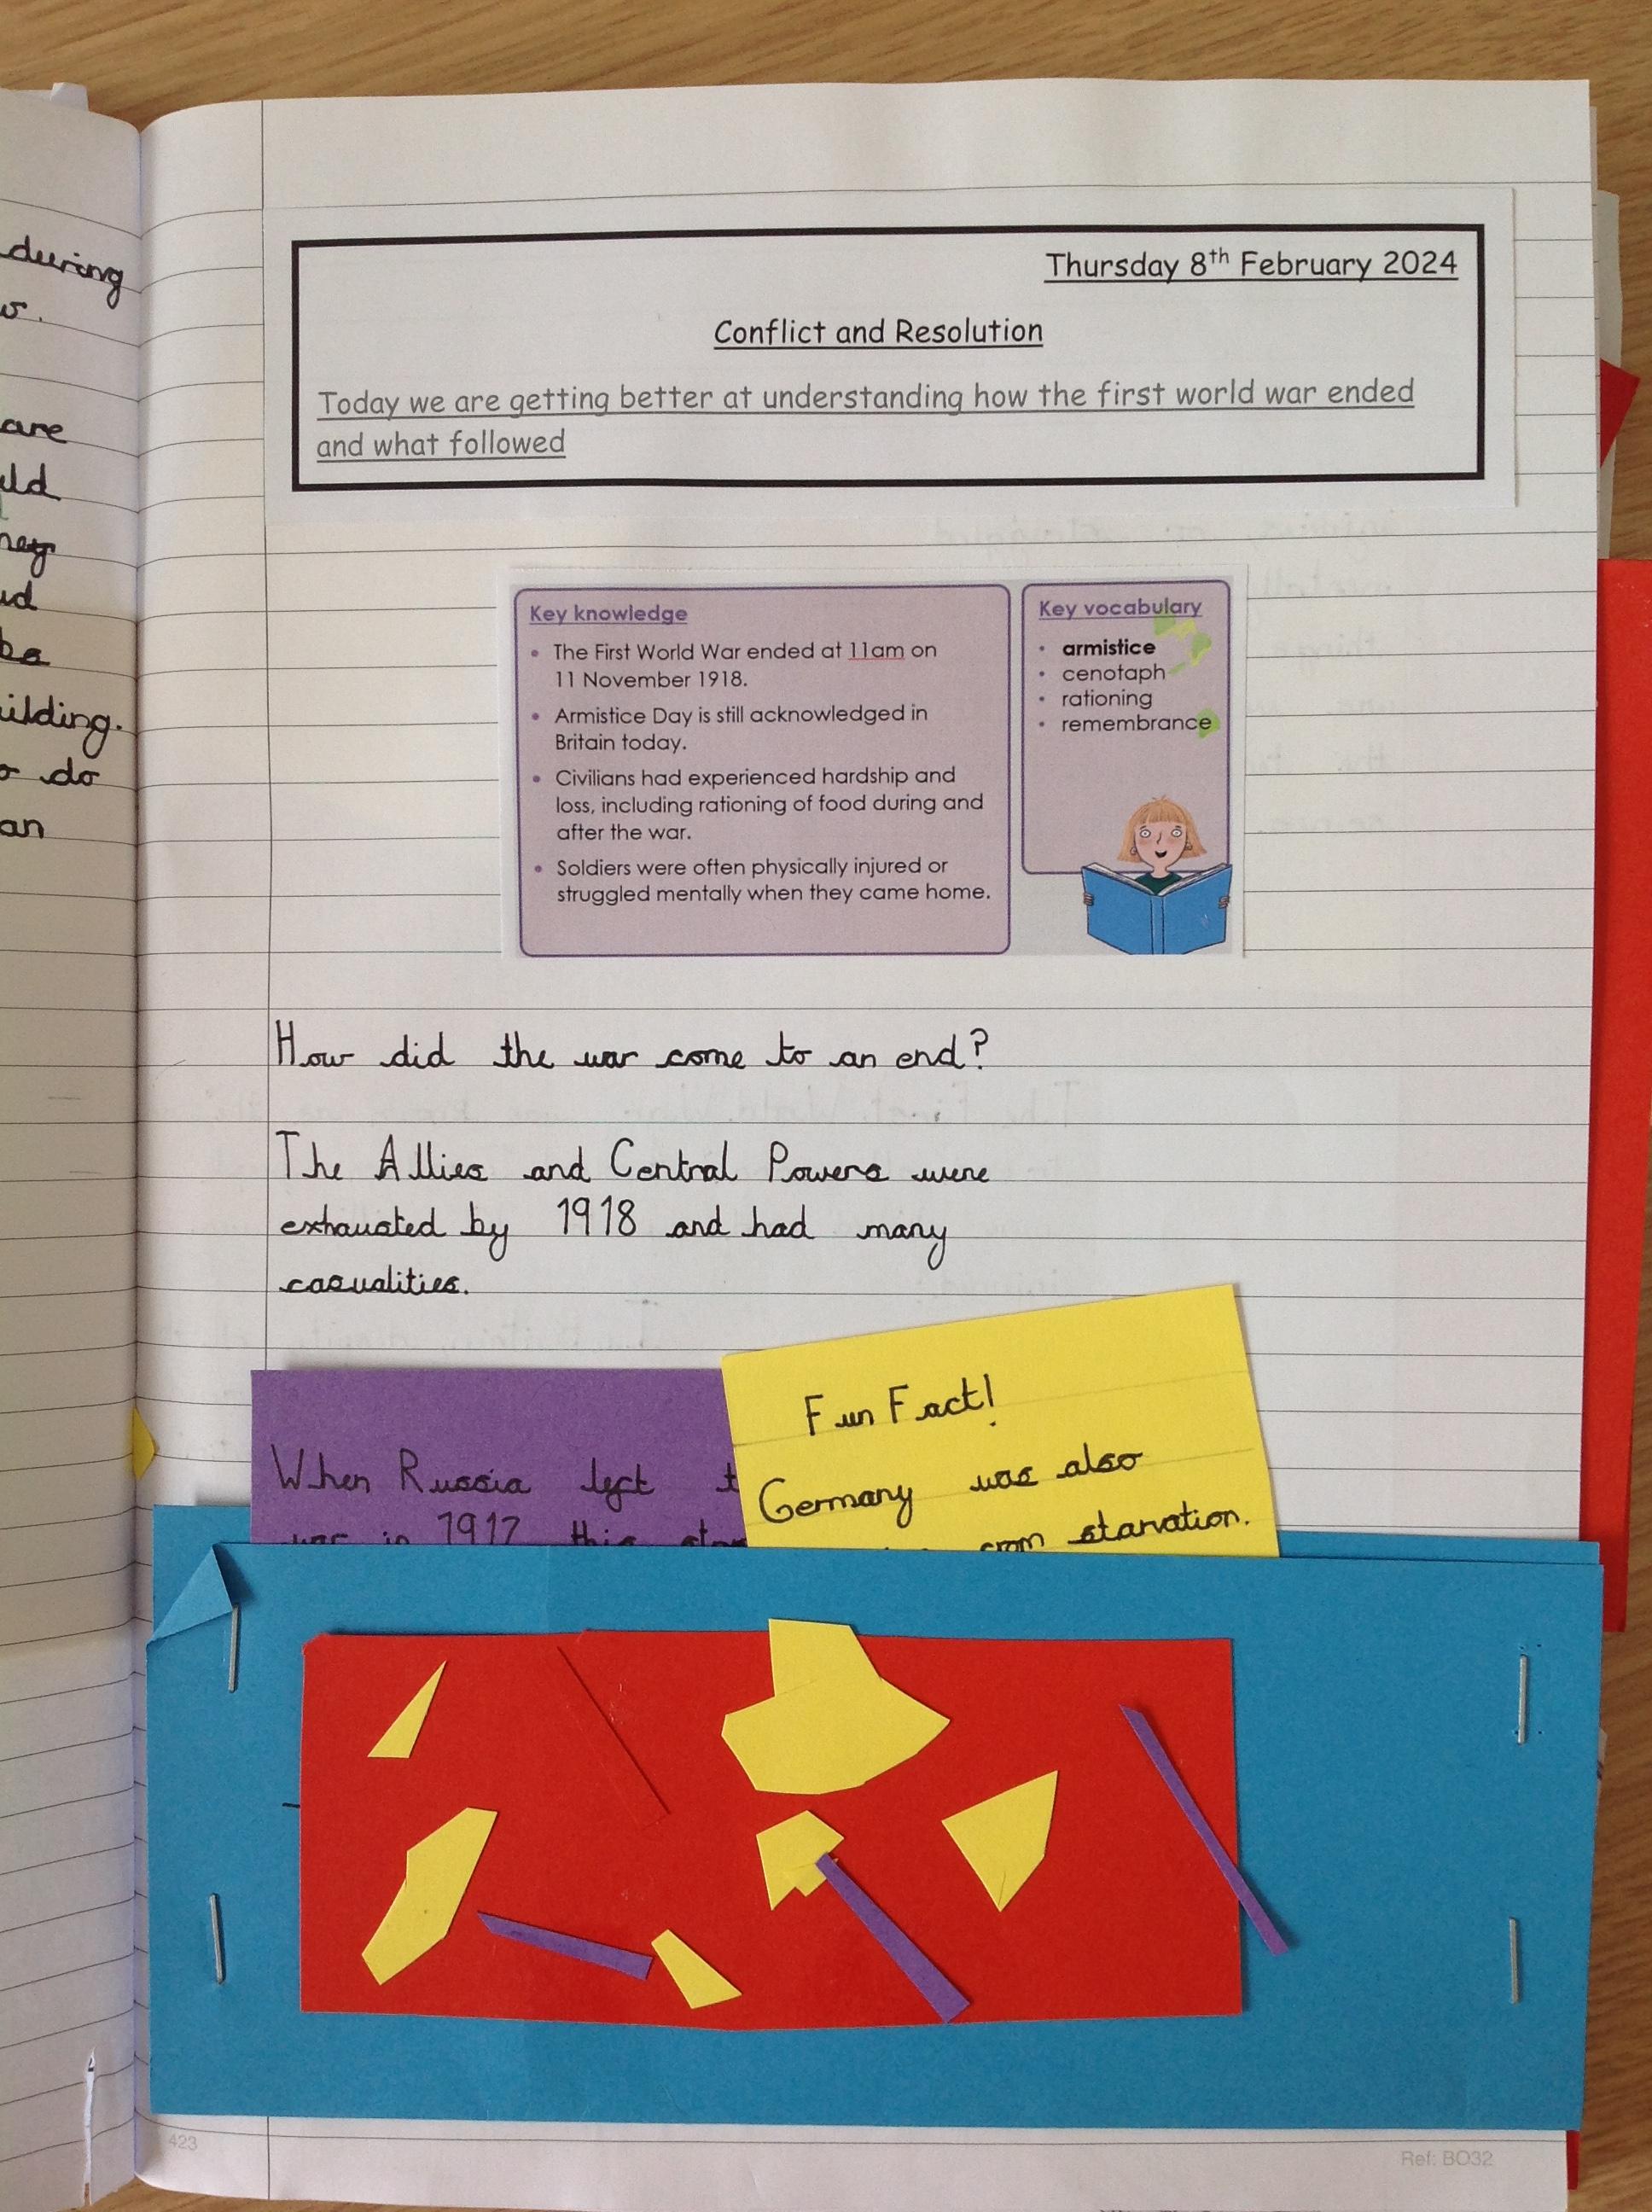 during
are
uld
hey
ud
be
uilding.
do
an
Thursday 8th February 2024
Conflict and Resolution
Today we are getting better at understanding how the first world war ended
and what followed
Key knowledge
• The First World War ended at 11am on
11 November 1918.
• Armistice Day is still acknowledged in
Britain today.
• Civilians had experienced hardship and
loss, including rationing of food during and
after the war.
• Soldiers were often physically injured or
struggled mentally when they came home.
Key vocabulary
• armistice
• cenotaph
• rationing
• remembrance
How did the war come to an end?
The Allies and Central Powers were
exhausted by 1918 and had many
casualities.
When Russia left t
war in 1917 this
Fun Fact!
Germany was also
from starvation.
423
Ref: BO32